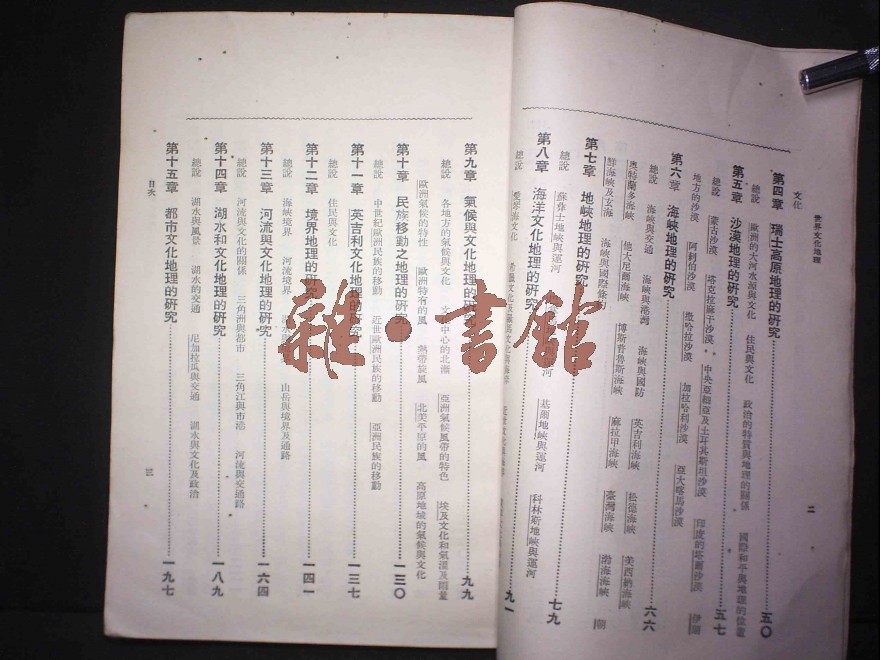 世界文化地理
二
第四章 瑞士高原地理的研究……五〇
總說 歐洲的大河水源與文化 住民與文化 政治的特質與地理的關係 國際和平與地理的位置
文化
第五章 沙漠地理的研究……五七
總說 蒙古沙漠 塔克拉麻干沙漠 中央亞細亞及土耳其斯坦沙漠 印度的塔爾沙漠 伊
地方的沙漠 阿剌伯沙漠 撒哈拉沙漠 加拉哈利沙漠 亞大喀馬沙漠
第六章 海峽地理的研究……六六
總說 海峽與交通 海峽與港灣 海峽與國防 英吉利海峽 松德海峽 美西納海峽
奧特蘭多海峽 他大尼爾海峽 博斯普魯斯海峽 麻拉甲海峽 臺灣海峽 渤海海峽 朝
鮮海峽及玄海 海峽與國際條約
第七章 地峽地理的研究……七九
總說 蘇彝士地峽與運河 運河 基爾地峽與運河 科林斯地峽與運河
第八章 海洋文化地理的研究……九一
總說 愛琴海文化 希臘文化及羅馬文化與海洋
第九章 氣候與文化地理的研究……九九
總說 各地方的氣候與文化 文化中心的北漸 亞洲氣候風帶的特色 埃及文化和氣溫及雨量
歐洲氣候的特性 歐洲特有的風 熱帶旋風 北美平原的風 高原地域的氣候與文化
第十章 民族移動之地理的研究……一三〇
總說 中世紀歐洲民族的移動 近世歐洲民族的移動 亞洲民族的移動
第十一章 英吉利文化地理的研究……一三七
總說 住民與文化
第十二章 境界地理的研究……一四一
總說 海峽境界 河流境界 山岳與境界及通路
第十三章 河流與文化地理的研究……一六四
總說 河流與文化的關係 三角洲與都市 三角江與市港 河流與交通路
第十四章 湖水和文化地理的研究……一八九
總說 湖水與風景 湖水的交通 尼加拉瓜與交通 湖水與文化及政治
第十五章 都市文化地理的研究……一九七
目次
三
雜·書館